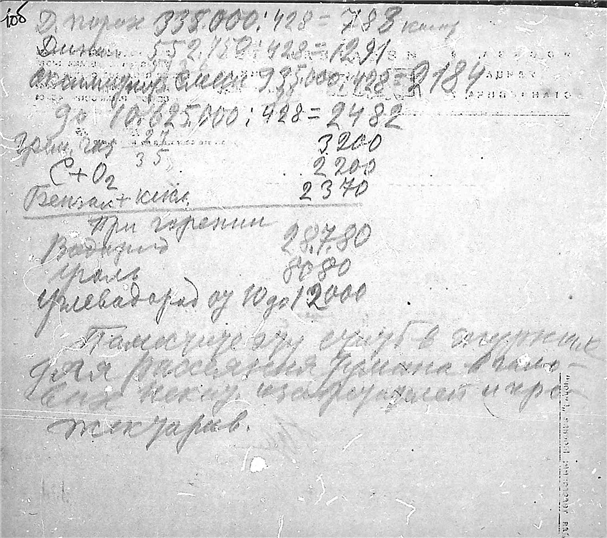 106
Д. порох 335.000:428=783 калор
Динам 552.750:428=1291
оксиликвит. смеси 935000:428=2184
до 10.625.000:428=2482
Грем. газ 3200
C+O2 2200
Бензол+кисл. 2370
При горении
Водород 28.780
Уголь 8080
Углеводород от 10 до 12000
Помогите эту статью в журнал
для рассеяния тумана в голо-
вах неких изобретателей и про-
жектеров.